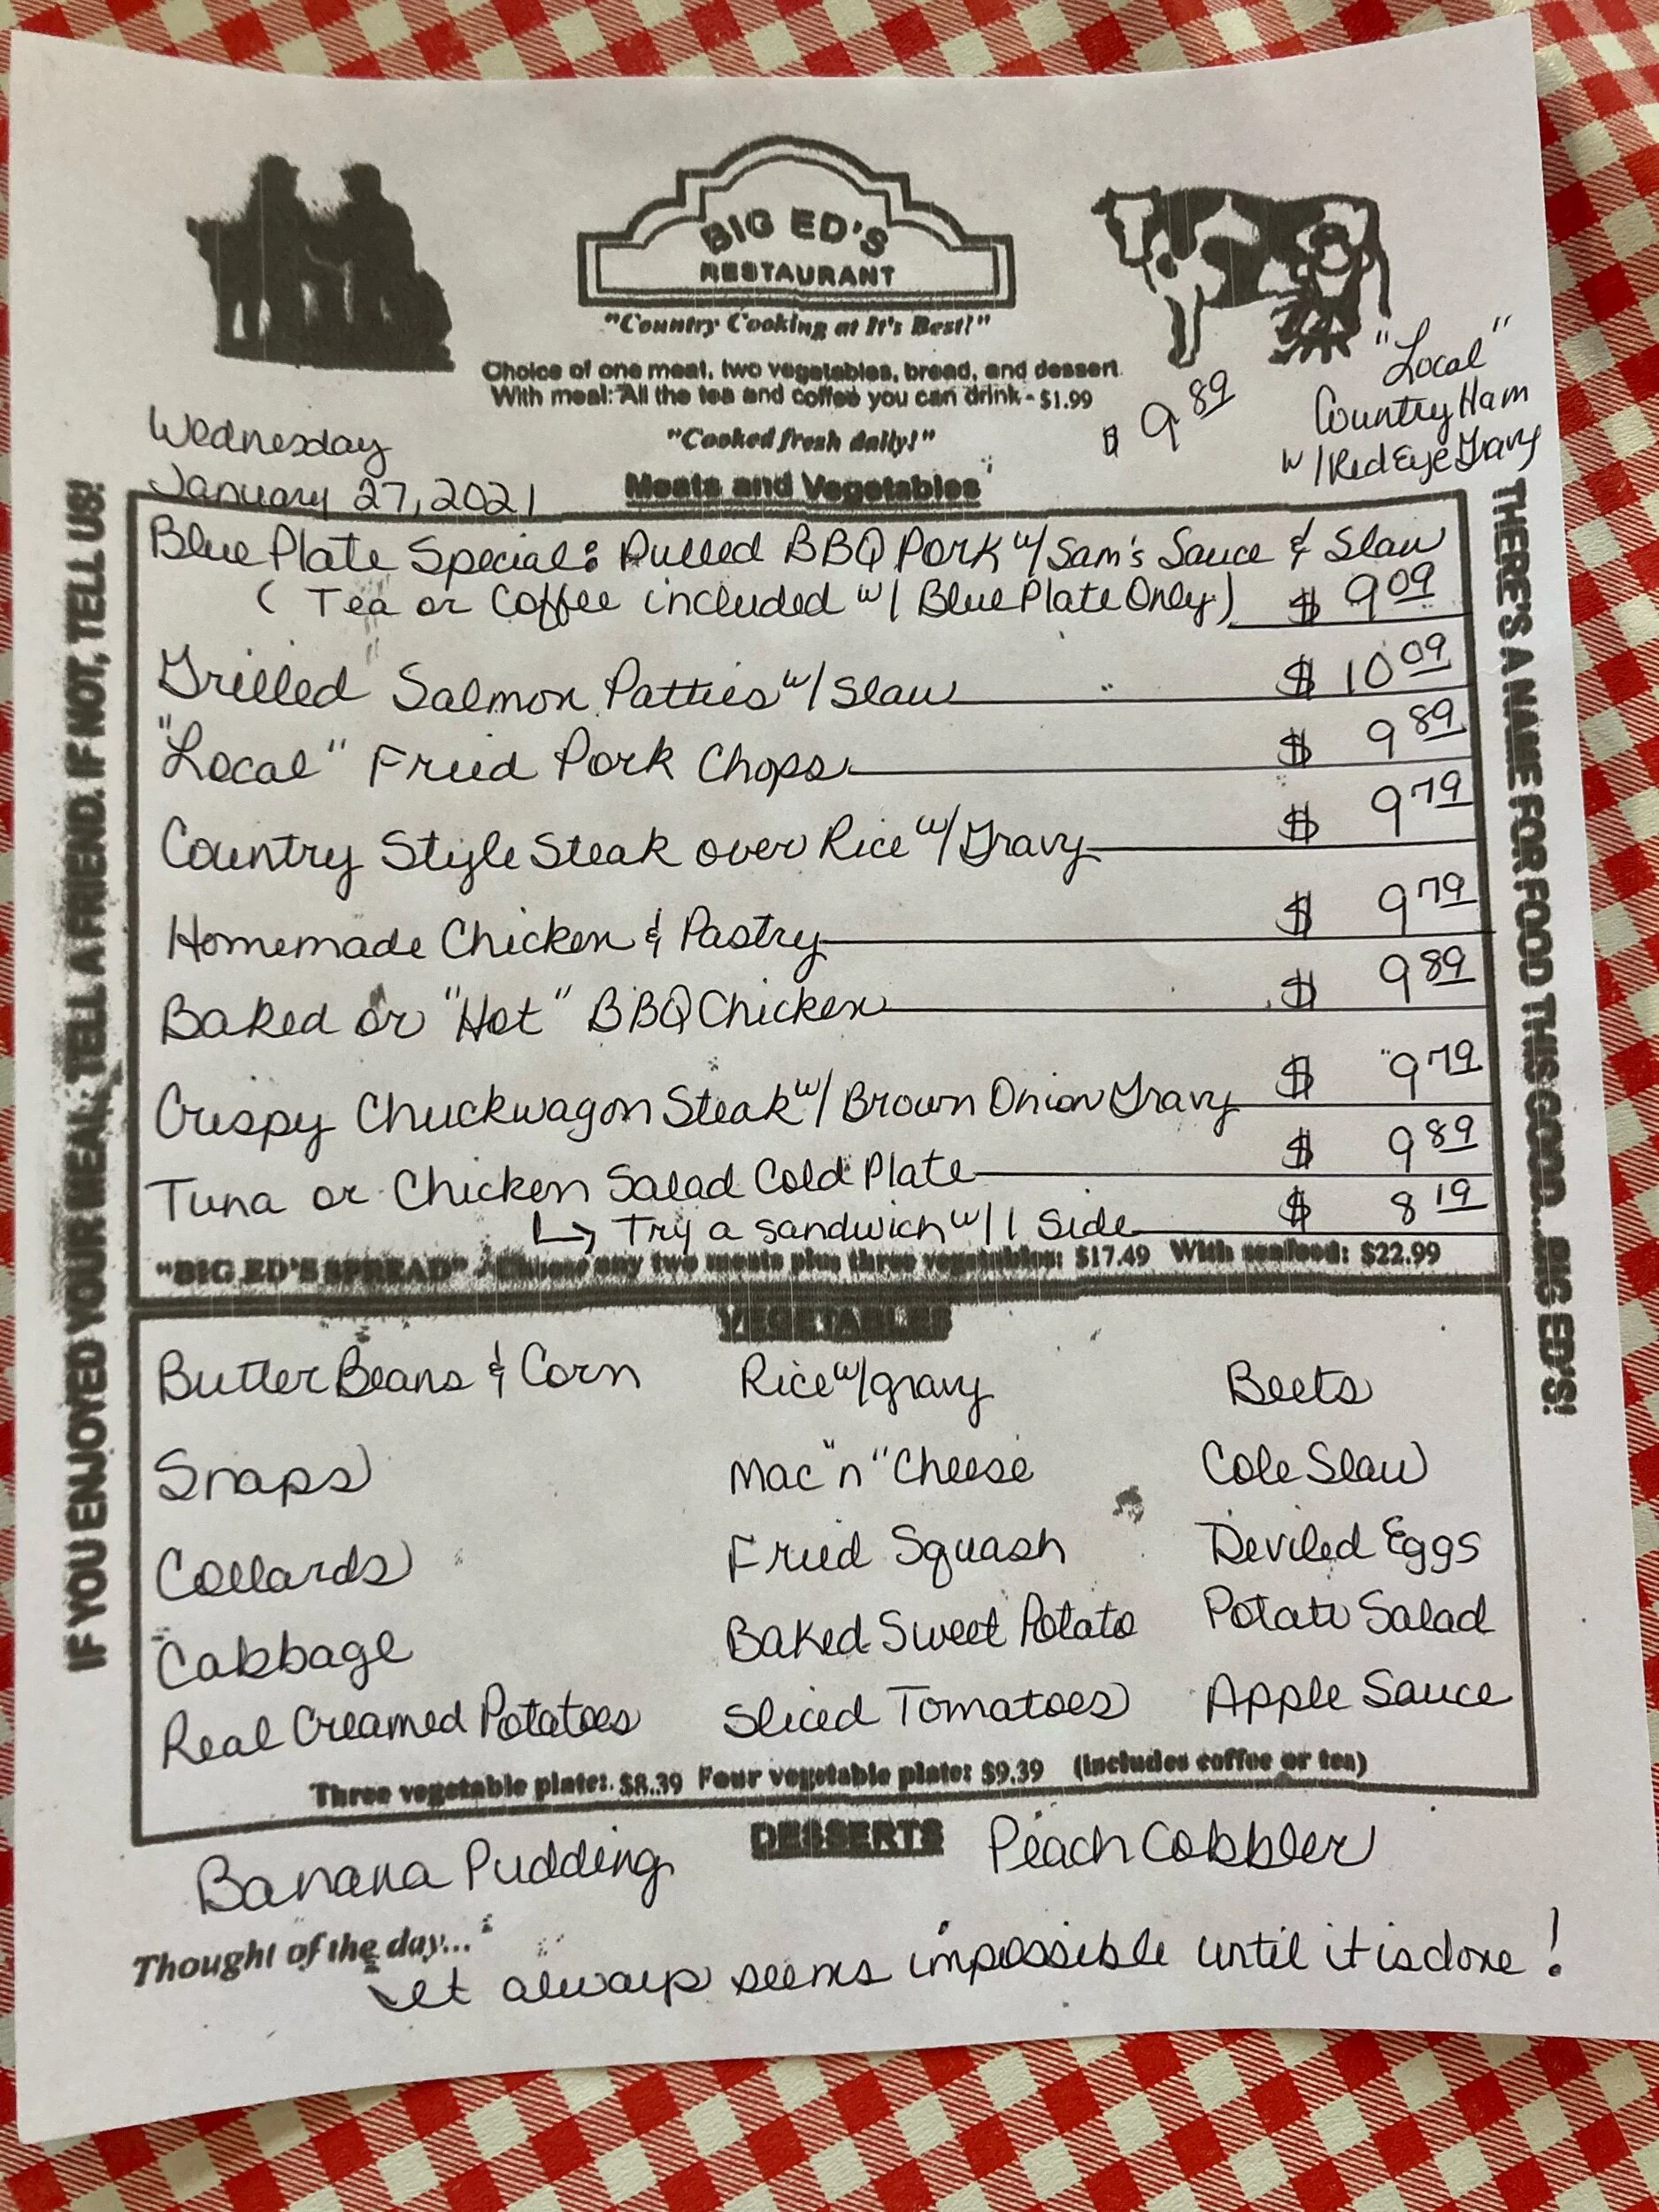 BIG ED'S
RESTAURANT
"Country Cooking at It's Best!"
Choice of one meat, two vegetables, bread, and dessert
With meal: All the tea and coffee you can drink - $1.99
"Cooked fresh daily!"
$ 9 89
"Local"
Country Ham
w/ Red Eye Gravy
Wednesday
January 27, 2021
Meats and Vegetables
Blue Plate Special: Pulled BBQ Pork w/ Sam's Sauce & Slaw
(Tea or Coffee included w/ Blue Plate Only) $ 9 09
Grilled Salmon Patties w/ Slaw $ 10 09
"Local" Fried Pork Chops $ 9 89
Country Style Steak over Rice w/ Gravy $ 9 79
Homemade Chicken & Pastry $ 9 79
Baked or "Hot" BBQ Chicken $ 9 89
Crispy Chuckwagon Steak w/ Brown Onion Gravy $ 9 79
Tuna or Chicken Salad Cold Plate $ 9 89
↳ Try a sandwich w/ 1 Side $ 8 19
"BIG ED'S SPREAD" - Choose any two meats plus three vegetables: $17.49 With seafood: $22.99
VEGETABLES
Butter Beans & Corn Rice w/ gravy Beets
Snaps Mac "n" Cheese Cole Slaw
Collards Fried Squash Deviled Eggs
Cabbage Baked Sweet Potato Potato Salad
Real Creamed Potatoes Sliced Tomatoes Apple Sauce
Three vegetable plate: $8.39 Four vegetable plate: $9.39 (includes coffee or tea)
DESSERTS
Banana Pudding Peach Cobbler
Thought of the day...
It always seems impossible until it is done!
IF YOU ENJOYED YOUR MEAL, TELL A FRIEND. IF NOT, TELL US!
THERE'S A NAME FOR FOOD THIS GOOD...BIG ED'S!